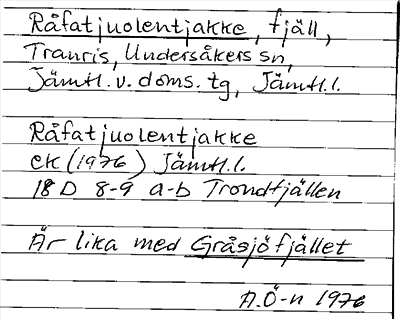 Råfatjuolentjakke, fjäll,
Tranris, Undersåkers sn,
Jämtl. v. doms. tg, Jämtl. l.
Råfatjuolentjakke
ek (1976) Jämtl. l.
18 D 8-9 a-b Trondfjällen
Är lika med Gråsjöfjället
A.Ö-n 1976